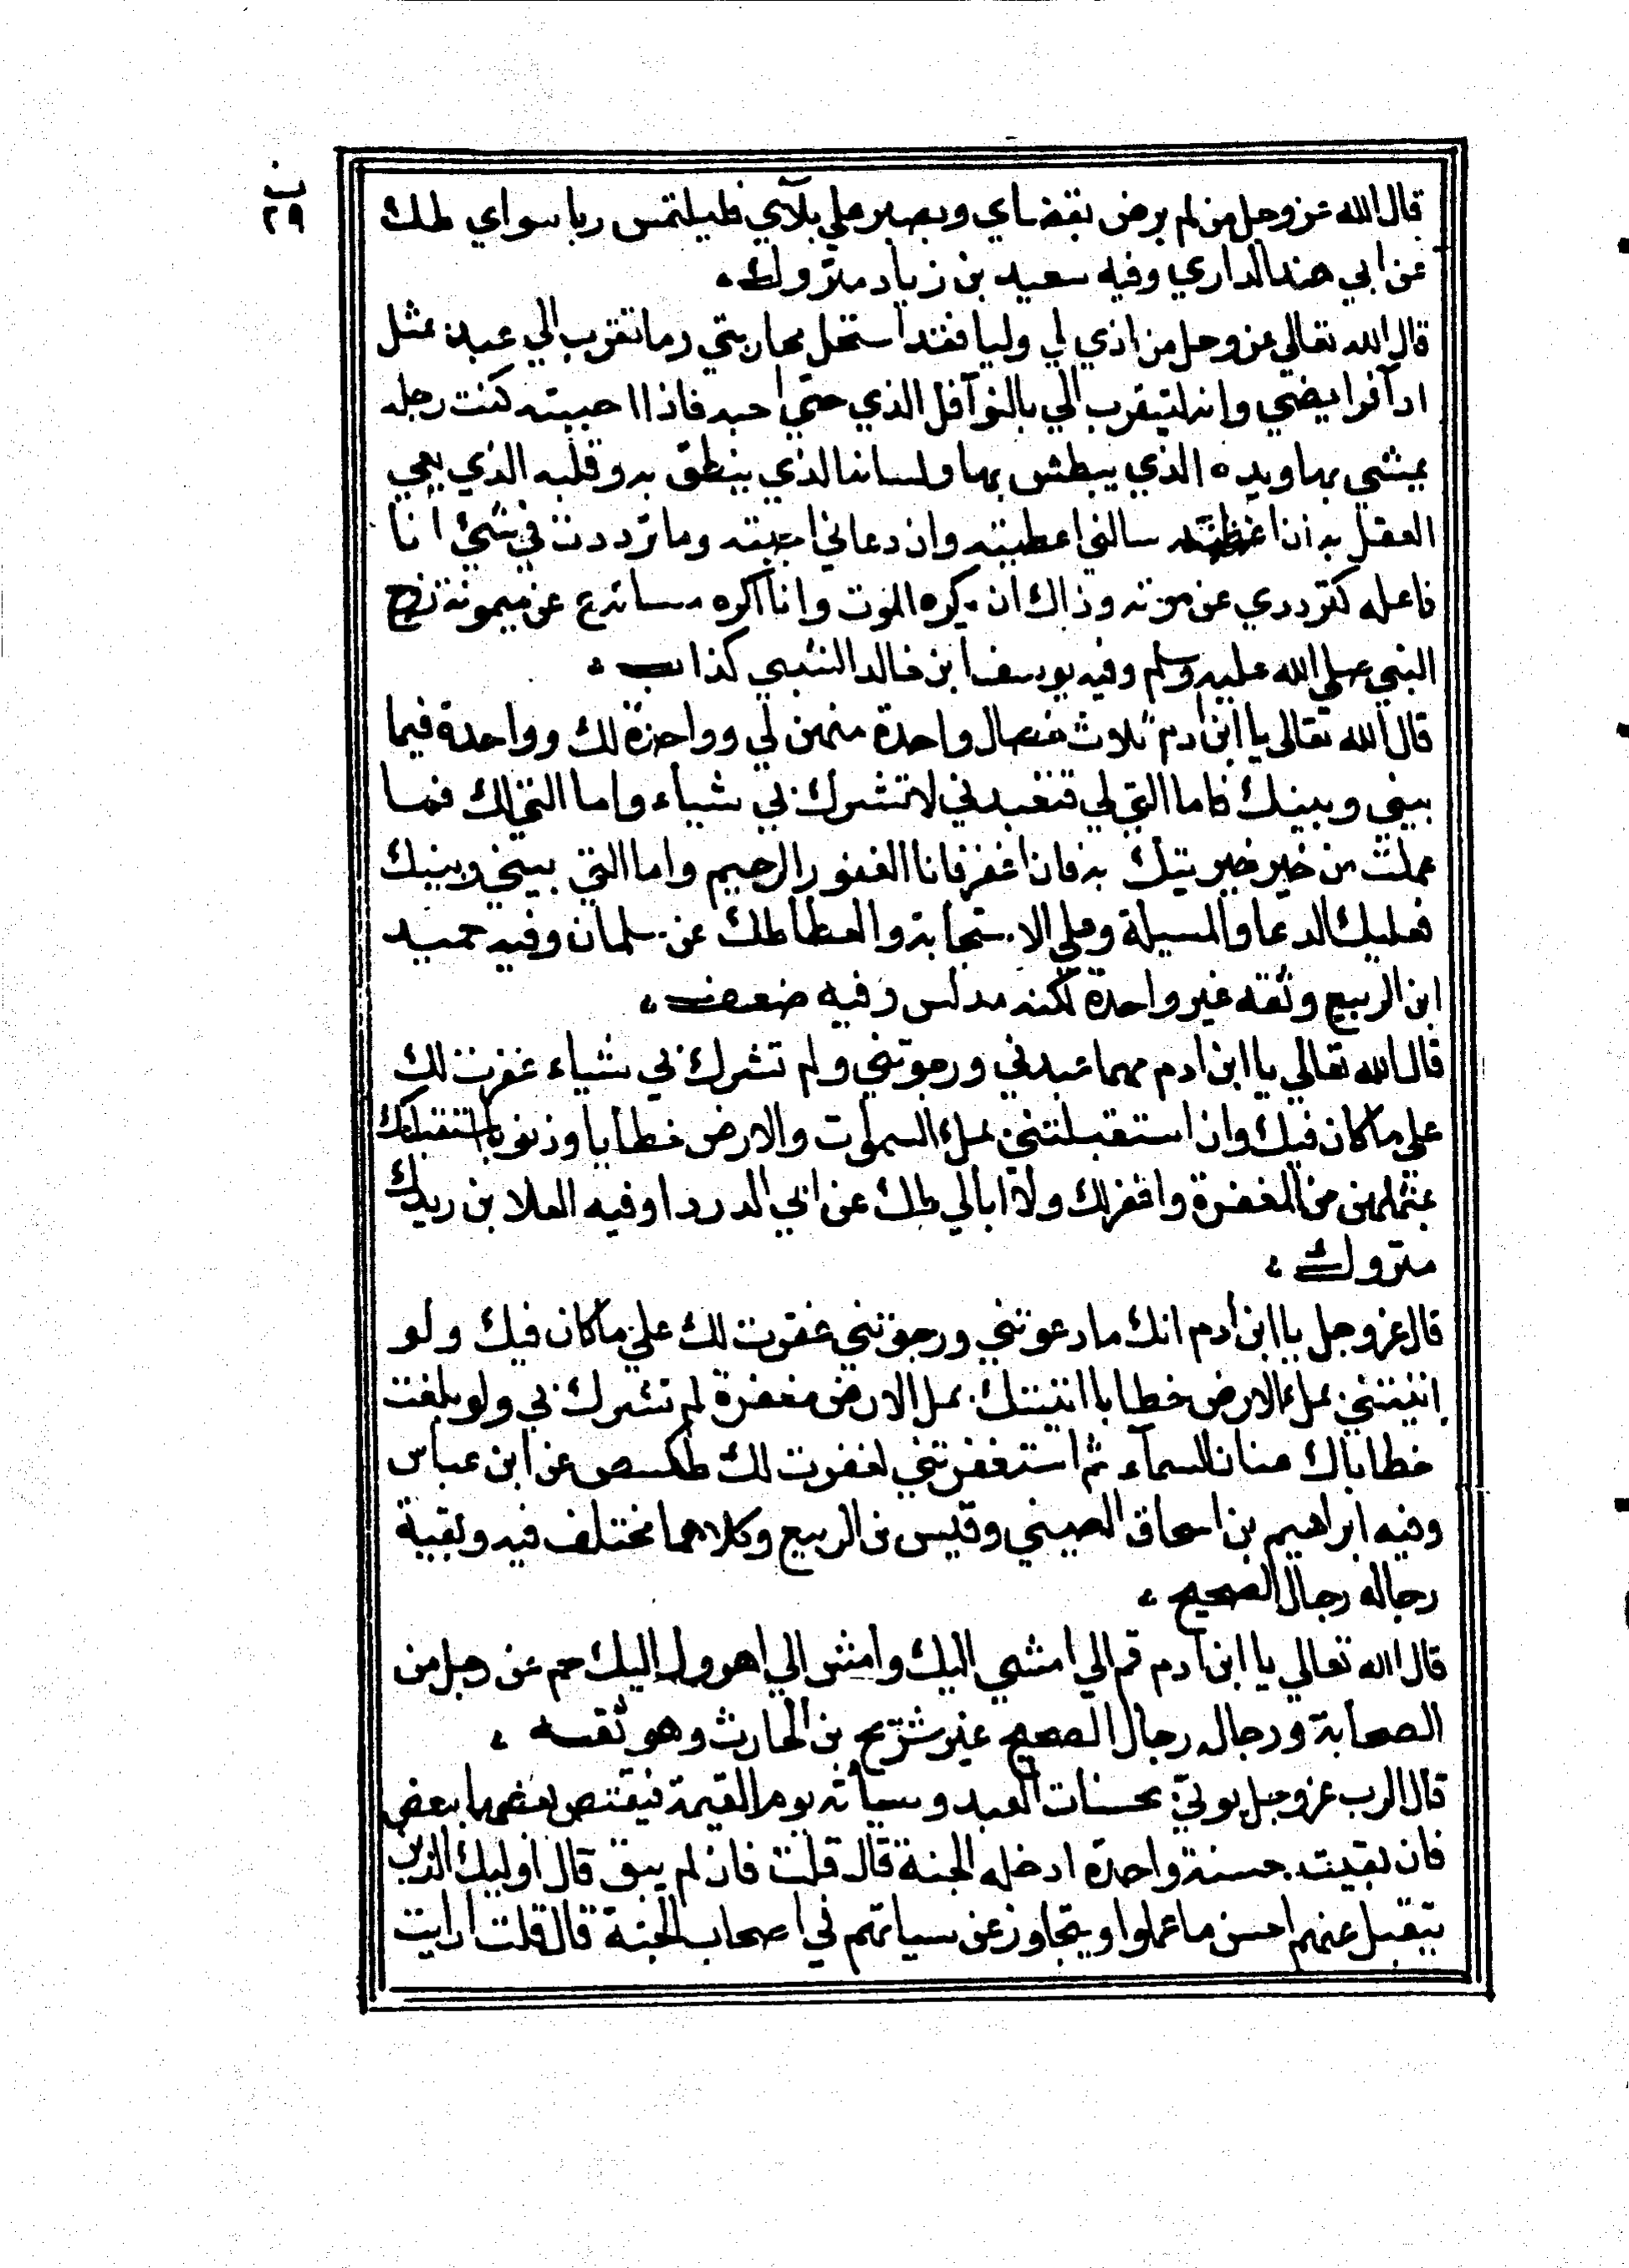 ب
٢٩
قال الله عز وجل من لم يرض بقضاي ويصبر علي بلآي فليلتمس ربا سواي طك
عن ابي هند الداري وفيه سعيد بن زياد متروك
قال الله تعالي عز وجل من اذي لي وليا فقد استحل محاربتي وما تقرب الي عبد بمثل
ادآ فرايضي وانه ليتقرب الي بالنوآفل الذي حتي احبه فاذا احببته كنت رجله
يمشي بها ويده الذي يبطش بها ولسانه الذي ينطق به وقلبه الذي يعي
العقل به ان سالني اعطيته وان دعاني اجبته وما ترددت في شيئ انا
فاعله كترددي عن موته وذاك ان يكره الموت وانا اكره مساته ع عن ميمونة زوج
النبي صلي الله عليه وسلم وفيه يوسف ابن خالد السبي كذاب
قال الله تعالى يا ابن ادم ثلاث خصال واحدة منهن لي وواحدة لك وواحدة فيما
بيني وبينك فاما التي لي فتعبدني لا تشرك بي شياء واما التي لك فما
عملت من خير خير يتك به فان اغفر فانا الغفور الرحيم واما التي بيني وبينك
فعليك الدعا والمسيلة وعلي الاستجابة والعطا طك عن سلمان وفيه حميد
ابن الربيع وثقه غير واحدة لكنه مدلس وفيه ضعف
قال الله تعالي يا ابن ادم مهما عبدني ورجوتني ولم تشرك بي شياء غفرت لك
علي ما كان فيك وان استقبلتني بملء السموات والارض خطايا وذنوبا استقبلتك
بمثلهن من المغفرة واغفر لك ولا ابالي طك عن ابي الدردا وفيه العلا بن زيدك
متروك
قال عز وجل يا ابن ادم انك ما دعوتني ورجوتني غفرت لك علي ما كان فيك ولو
اتيتني بملء الارض خطايا اتيتك بمل الارض مغفرة لم تشرك بي ولو بلغت
خطاياك عنان السمآء ثم استغفرتني لغفرت لك طكسص عن ابن عباس
وفيه ابراهيم بن اسحاق الصيني وقيس بن الربيع وكلاهما مختلف فيه وبقية
رجاله رجال الصحيح
قال الله تعالي يا ابن آدم قم الي امشي اليك وامش الي اهرول اليك حم عن رجل من
الصحابة ورجاله رجال الصحيح غير شريح بن الحارث وهو ثقه
قال الرب عز وجل يوتي بحسنات العبد وسياته يوم القيمة فيقتص بعضها ببعض
فان بقيت حسنة واحدة ادخله الجنة قال قلت فان لم يبق قال اوليك الذين
يتقبل عنهم احسن ما عملوا ويتجاوز عن سياتهم في اصحاب الجنة قال قلت ارايت